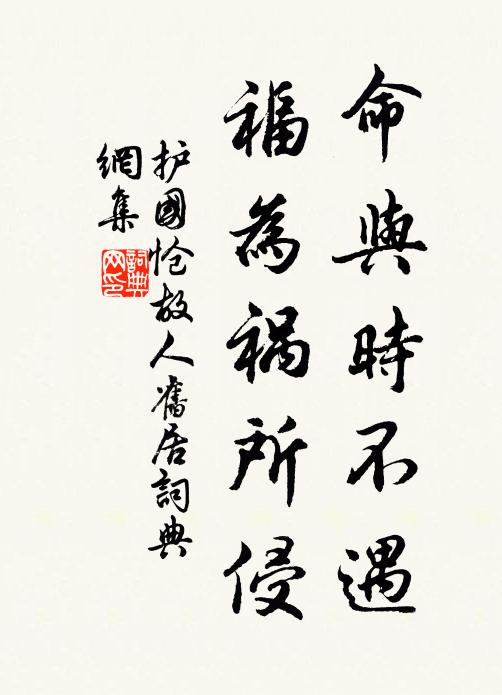 命與時不遇
福為禍所侵
护國怆故人舊居詞典
網集
詞典
网印